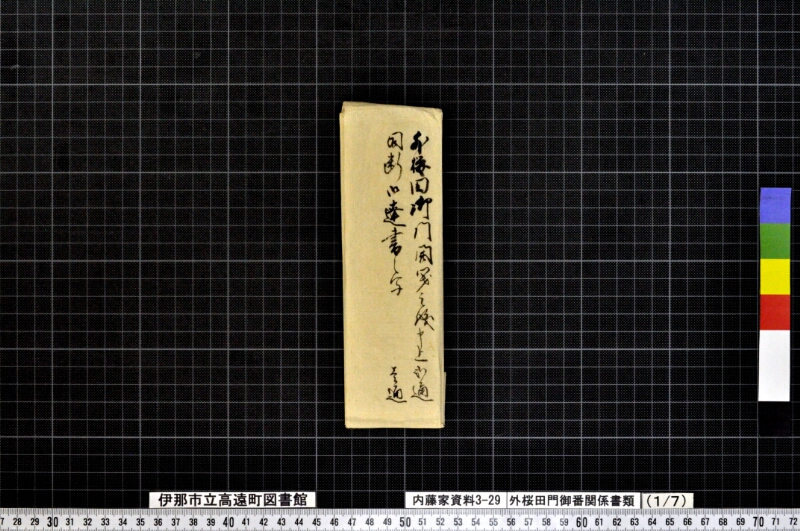 外桜田御門
同断御達書写
壱通
伊那市立高遠町図書館
内藤家資料3-29
外桜田門御番関係書類
(1/7)
7 28 29 30 31 32 33 34 35 36 37 38 39 40 41 42 43 44 45 46 47 48 49 50 51 52 53 54 55 56 57 58 59 60 61 62 63 64 65 66 67 68 69 70 71 72